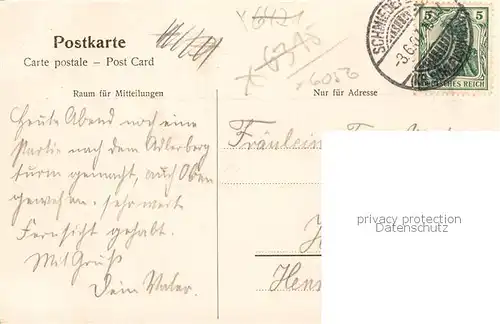 6421
6315
6056
Postkarte
Carte postale – Post Card
Raum für Mitteilungen
Nur für Adresse
SCHMIEDEF
-3.6.
5 5
DEUTSCHES REICH
Heute Abend noch eine
Partie nach dem Adlerberg
turm gemacht, auch Oben
gewesen. sehr weite
Fernsicht gehabt.
Mit Gruß
Dein Vater.
Fräulein
Hens
privacy protection
Datenschutz